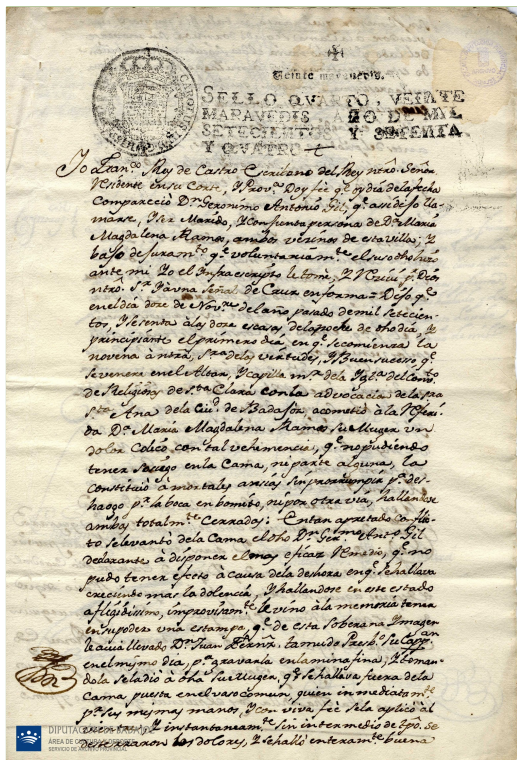 Veinte maravedis.
SELLO QVARTO, VEINTE
MARAVEDIS, AÑO DE MIL
SETECIENTOS Y SESENTA
Y QVATRO
Yo Fran.co Rey de Castro Escribano del Rey ntro. Señor
Residente en su Corte, y Prov.a Doy fee q.e oy dia de la fecha
Comparecio D.n Geronimo Antonio Gil, q.e asi dijo lla-
marse, y ser Marido, y Conjunta persona de D.a Maria
Magdalena Ramos, ambos vezinos de esta villa; y
bajo de juram.to q.e voluntariam.te el susodho hizo
ante mi Yo el Infraescripto le tome, y recivi p.r Dios
ntro. S.r y a una Señal de Cruz en forma = Dijo q.e
en el dia doze de Nov.re del año pasado de mil setecien-
tos, y sesenta à las doze escasas de la noche de dho dia
principiante el primero dia, en q.e se comienza la
novena à ntra. S.ra de las virtudes, y Buen suceso q.e
se venera en el Altar, y Capilla m.r de la Igl.a del Com.to
de Religiosas de S.ta Clara con la advocacion de la
S.ra S.ta Ana de la Ciu.d de Badajoz, acometio à la referi-
da D.a Maria Magdalena Ramos su Muger un
dolor Colico, con tal vehemencia, q.e no pudiendo
tener sosiego en la Cama, ni parte alguna, la
constituió à mortales ansias sin prorrumpir p.r des-
haogo p.r la boca en bomito, ni por otra via, hallandose
ambas totalm.te Cerradas; En tan apretado Conflic-
to se levantó de la Cama el dho D.n Ger.mo Ant.o Gil
declarante à disponer el mas eficaz remedio, q.e no
pudo tener efecto à causa de la deshora en q.e se hallava
creciendo mas la dolencia, y hallandose en este estado
afligidissimo, improvisam.te le vino à la memoria tenia
en su poder una estampa, q.e de esta Soberana Imagen
le avia llevado D.n Juan Ferñz. tamudo Presb.o su Capp.an
en el mismo dia, p.a gravarla en lamina fina; y toman-
dola se la dió à dha su Muger, q.e se hallava fuera de la
Cama puesta en el vaso comun, quien inmediatam.te
p.r sus mismas manos, y con viva fee se la aplicó al
vientre, y instantaneam.te sin intermedio de tpo. se
desterraron los dolores, y se halló enteram.te buena
DIPUTACIÓN DE BADAJOZ
ÁREA DE CULTURA Y DEPORTE
SERVICIO DE ARCHIVO PROVINCIAL